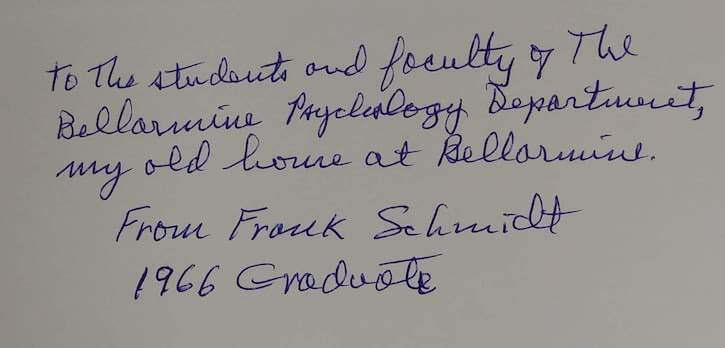 To The students and faculty of The
Bellarmine Psychology Department,
my old home at Bellarmine.
From Frank Schmidt
1966 Graduate